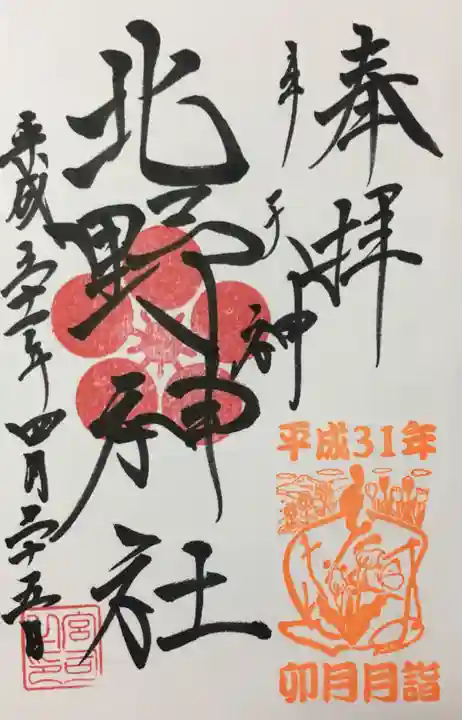 奉拝
牛天神
北野神社
平成三十一年四月二十五日
平成31年
卯月月詣
宮司之印